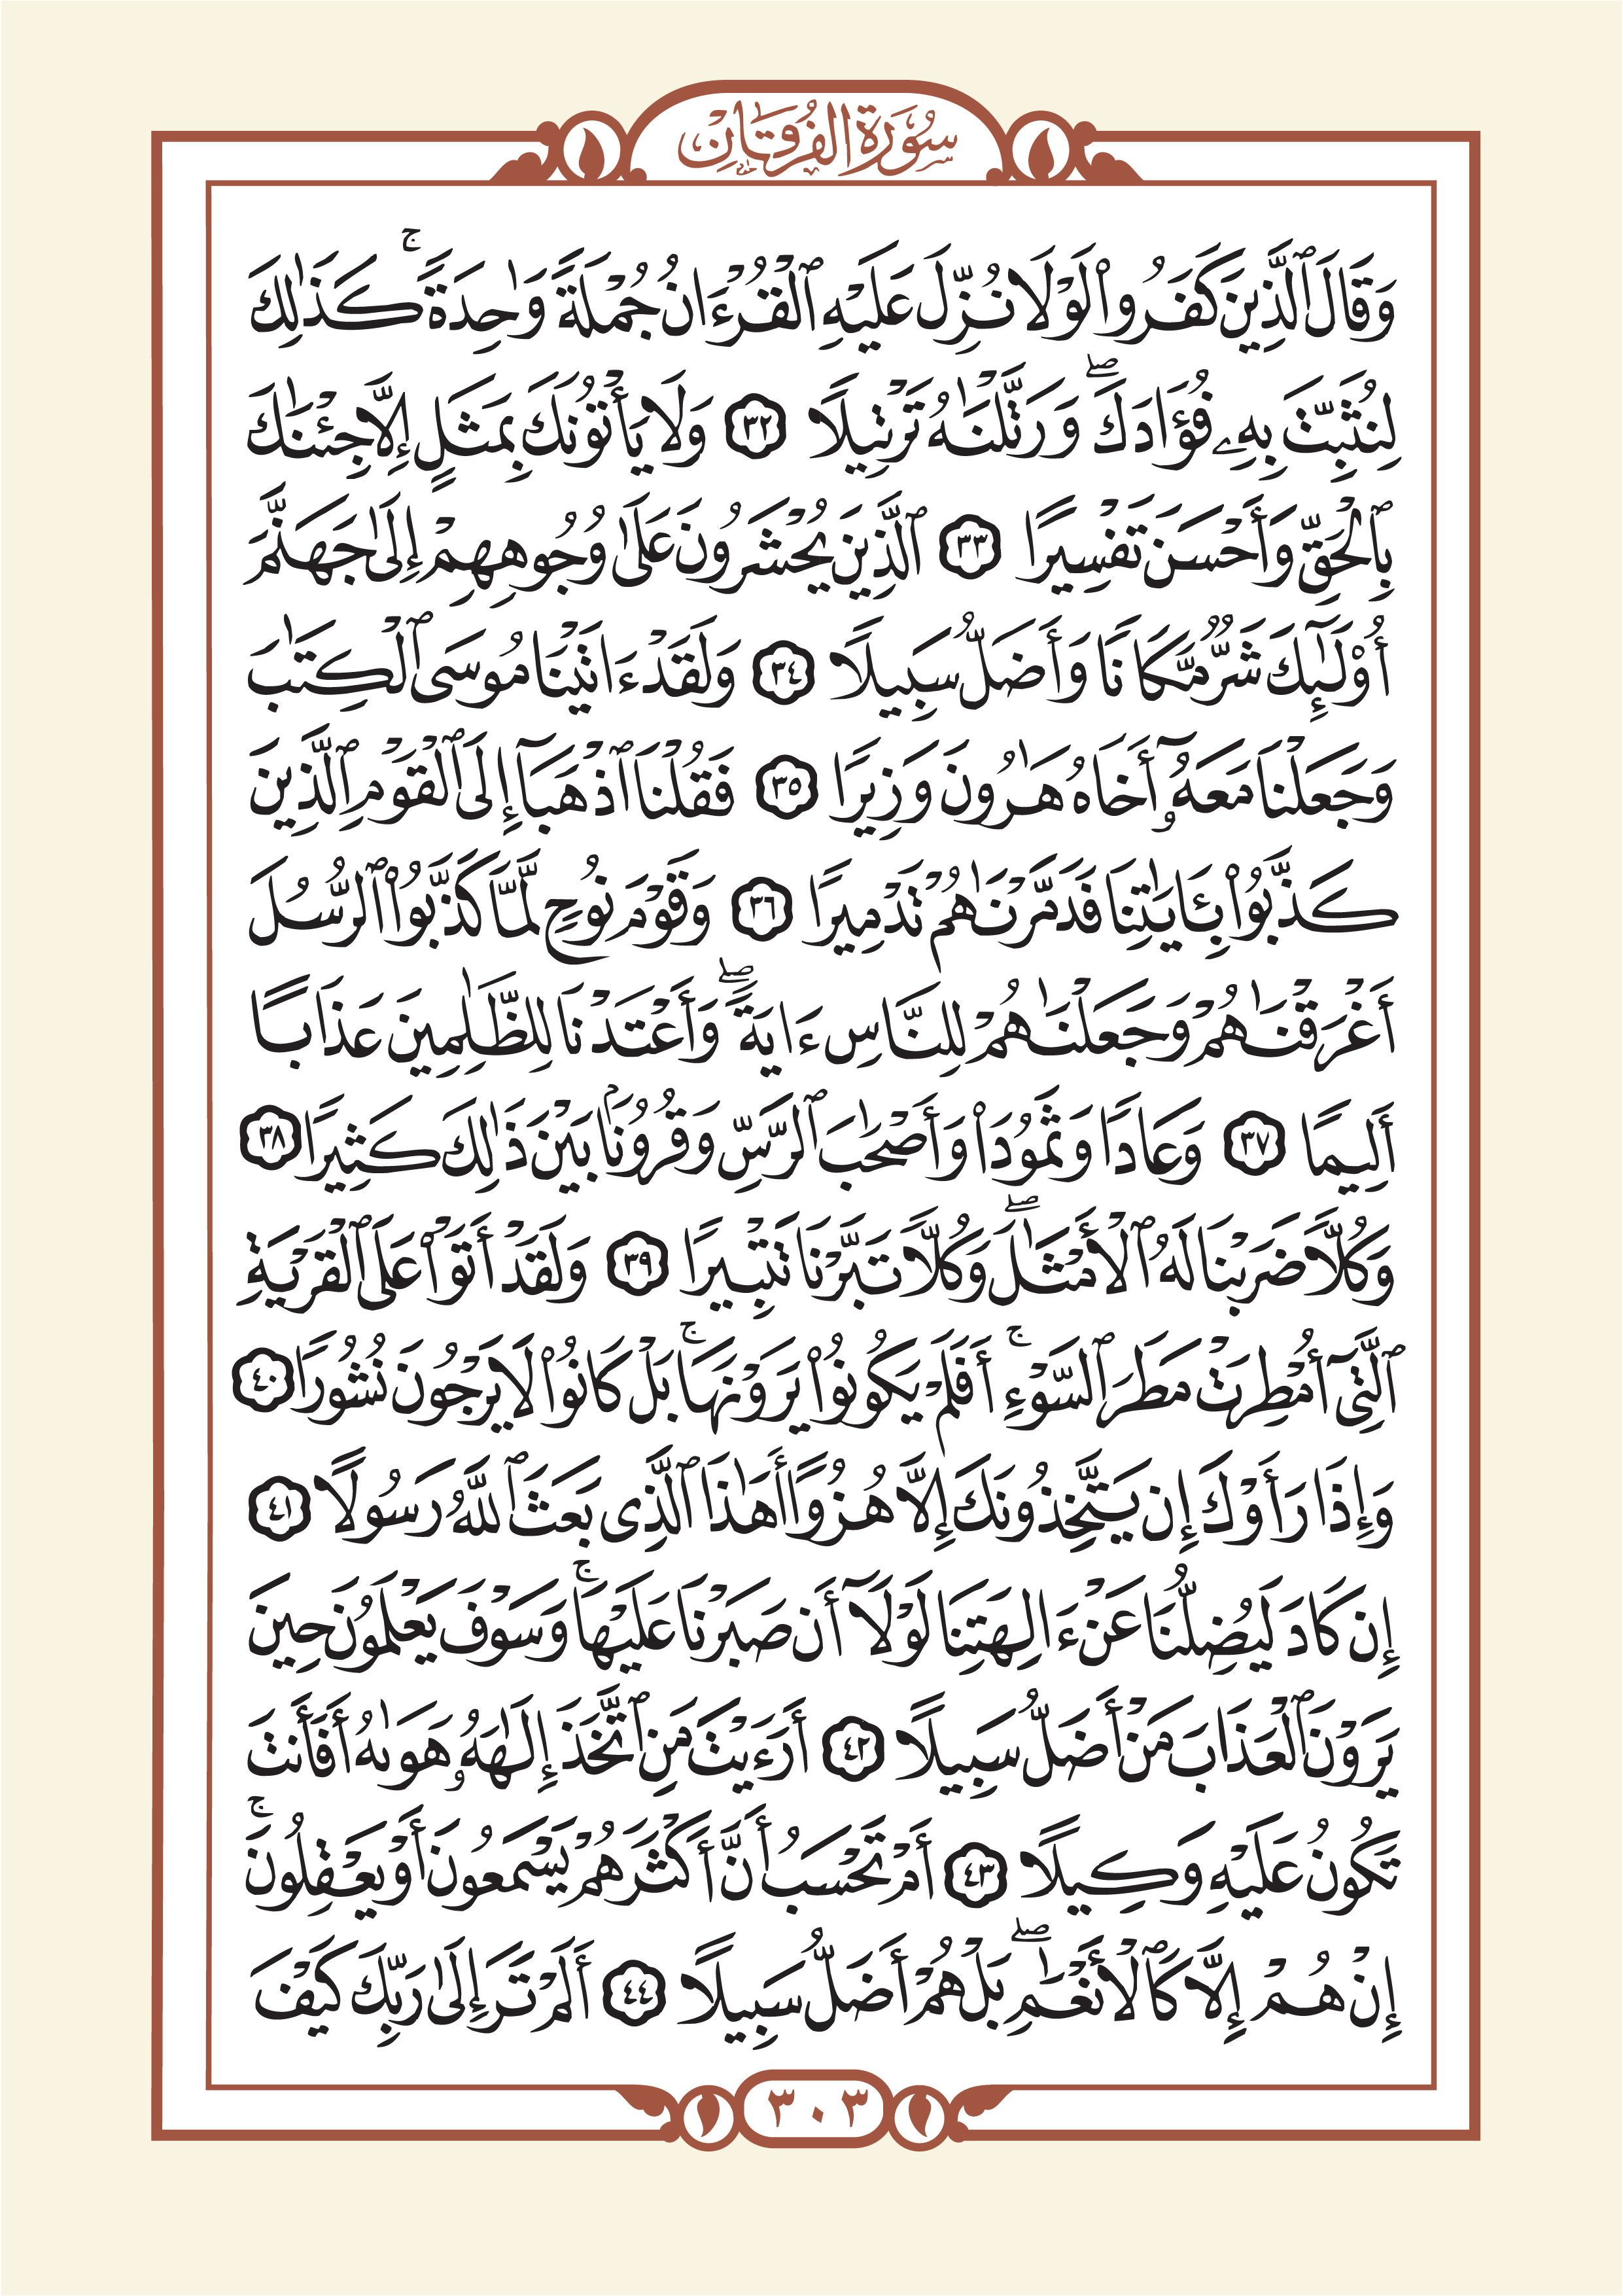 سُورَةُ الفُرْقَانِ
وَقَالَ ٱلَّذِينَ كَفَرُوا۟ لَوْلَا نُزِّلَ عَلَيْهِ ٱلْقُرْءَانُ جُمْلَةً وَٰحِدَةً ۚ كَذَٰلِكَ
لِنُثَبِّتَ بِهِۦ فُؤَادَكَ ۖ وَرَتَّلْنَٰهُ تَرْتِيلًا ٣٢ وَلَا يَأْتُونَكَ بِمَثَلٍ إِلَّا جِئْنَٰكَ
بِٱلْحَقِّ وَأَحْسَنَ تَفْسِيرًا ٣٣ ٱلَّذِينَ يُحْشَرُونَ عَلَىٰ وُجُوهِهِمْ إِلَىٰ جَهَنَّمَ
أُو۟لَٰٓئِكَ شَرٌّ مَّكَانًا وَأَضَلُّ سَبِيلًا ٣٤ وَلَقَدْ ءَاتَيْنَا مُوسَى ٱلْكِتَٰبَ
وَجَعَلْنَا مَعَهُۥٓ أَخَاهُ هَٰرُونَ وَزِيرًا ٣٥ فَقُلْنَا ٱذْهَبَآ إِلَى ٱلْقَوْمِ ٱلَّذِينَ
كَذَّبُوا۟ بِـَٔايَٰتِنَا فَدَمَّرْنَٰهُمْ تَدْمِيرًا ٣٦ وَقَوْمَ نُوحٍ لَّمَّا كَذَّبُوا۟ ٱلرُّسُلَ
أَغْرَقْنَٰهُمْ وَجَعَلْنَٰهُمْ لِلنَّاسِ ءَايَةً ۖ وَأَعْتَدْنَا لِلظَّٰلِمِينَ عَذَابًا
أَلِيمًا ٣٧ وَعَادًا وَثَمُودَا۟ وَأَصْحَٰبَ ٱلرَّسِّ وَقُرُونًۢا بَيْنَ ذَٰلِكَ كَثِيرًا ٣٨
وَكُلًّا ضَرَبْنَا لَهُ ٱلْأَمْثَٰلَ ۖ وَكُلًّا تَبَّرْنَا تَتْبِيرًا ٣٩ وَلَقَدْ أَتَوْا۟ عَلَى ٱلْقَرْيَةِ
ٱلَّتِىٓ أُمْطِرَتْ مَطَرَ ٱلسَّوْءِ ۚ أَفَلَمْ يَكُونُوا۟ يَرَوْنَهَا ۚ بَلْ كَانُوا۟ لَا يَرْجُونَ نُشُورًا ٤٠
وَإِذَا رَأَوْكَ إِن يَتَّخِذُونَكَ إِلَّا هُزُوًا أَهَٰذَا ٱلَّذِى بَعَثَ ٱللَّهُ رَسُولًا ٤١
إِن كَادَ لَيُضِلُّنَا عَنْ ءَالِهَتِنَا لَوْلَآ أَن صَبَرْنَا عَلَيْهَا ۚ وَسَوْفَ يَعْلَمُونَ حِينَ
يَرَوْنَ ٱلْعَذَابَ مَنْ أَضَلُّ سَبِيلًا ٤٢ أَرَءَيْتَ مَنِ ٱتَّخَذَ إِلَٰهَهُۥ هَوَىٰهُ أَفَأَنتَ
تَكُونُ عَلَيْهِ وَكِيلًا ٤٣ أَمْ تَحْسَبُ أَنَّ أَكْثَرَهُمْ يَسْمَعُونَ أَوْ يَعْقِلُونَ ۚ
إِنْ هُمْ إِلَّا كَٱلْأَنْعَٰمِ ۖ بَلْ هُمْ أَضَلُّ سَبِيلًا ٤٤ أَلَمْ تَرَ إِلَىٰ رَبِّكَ كَيْفَ
٣٠٣